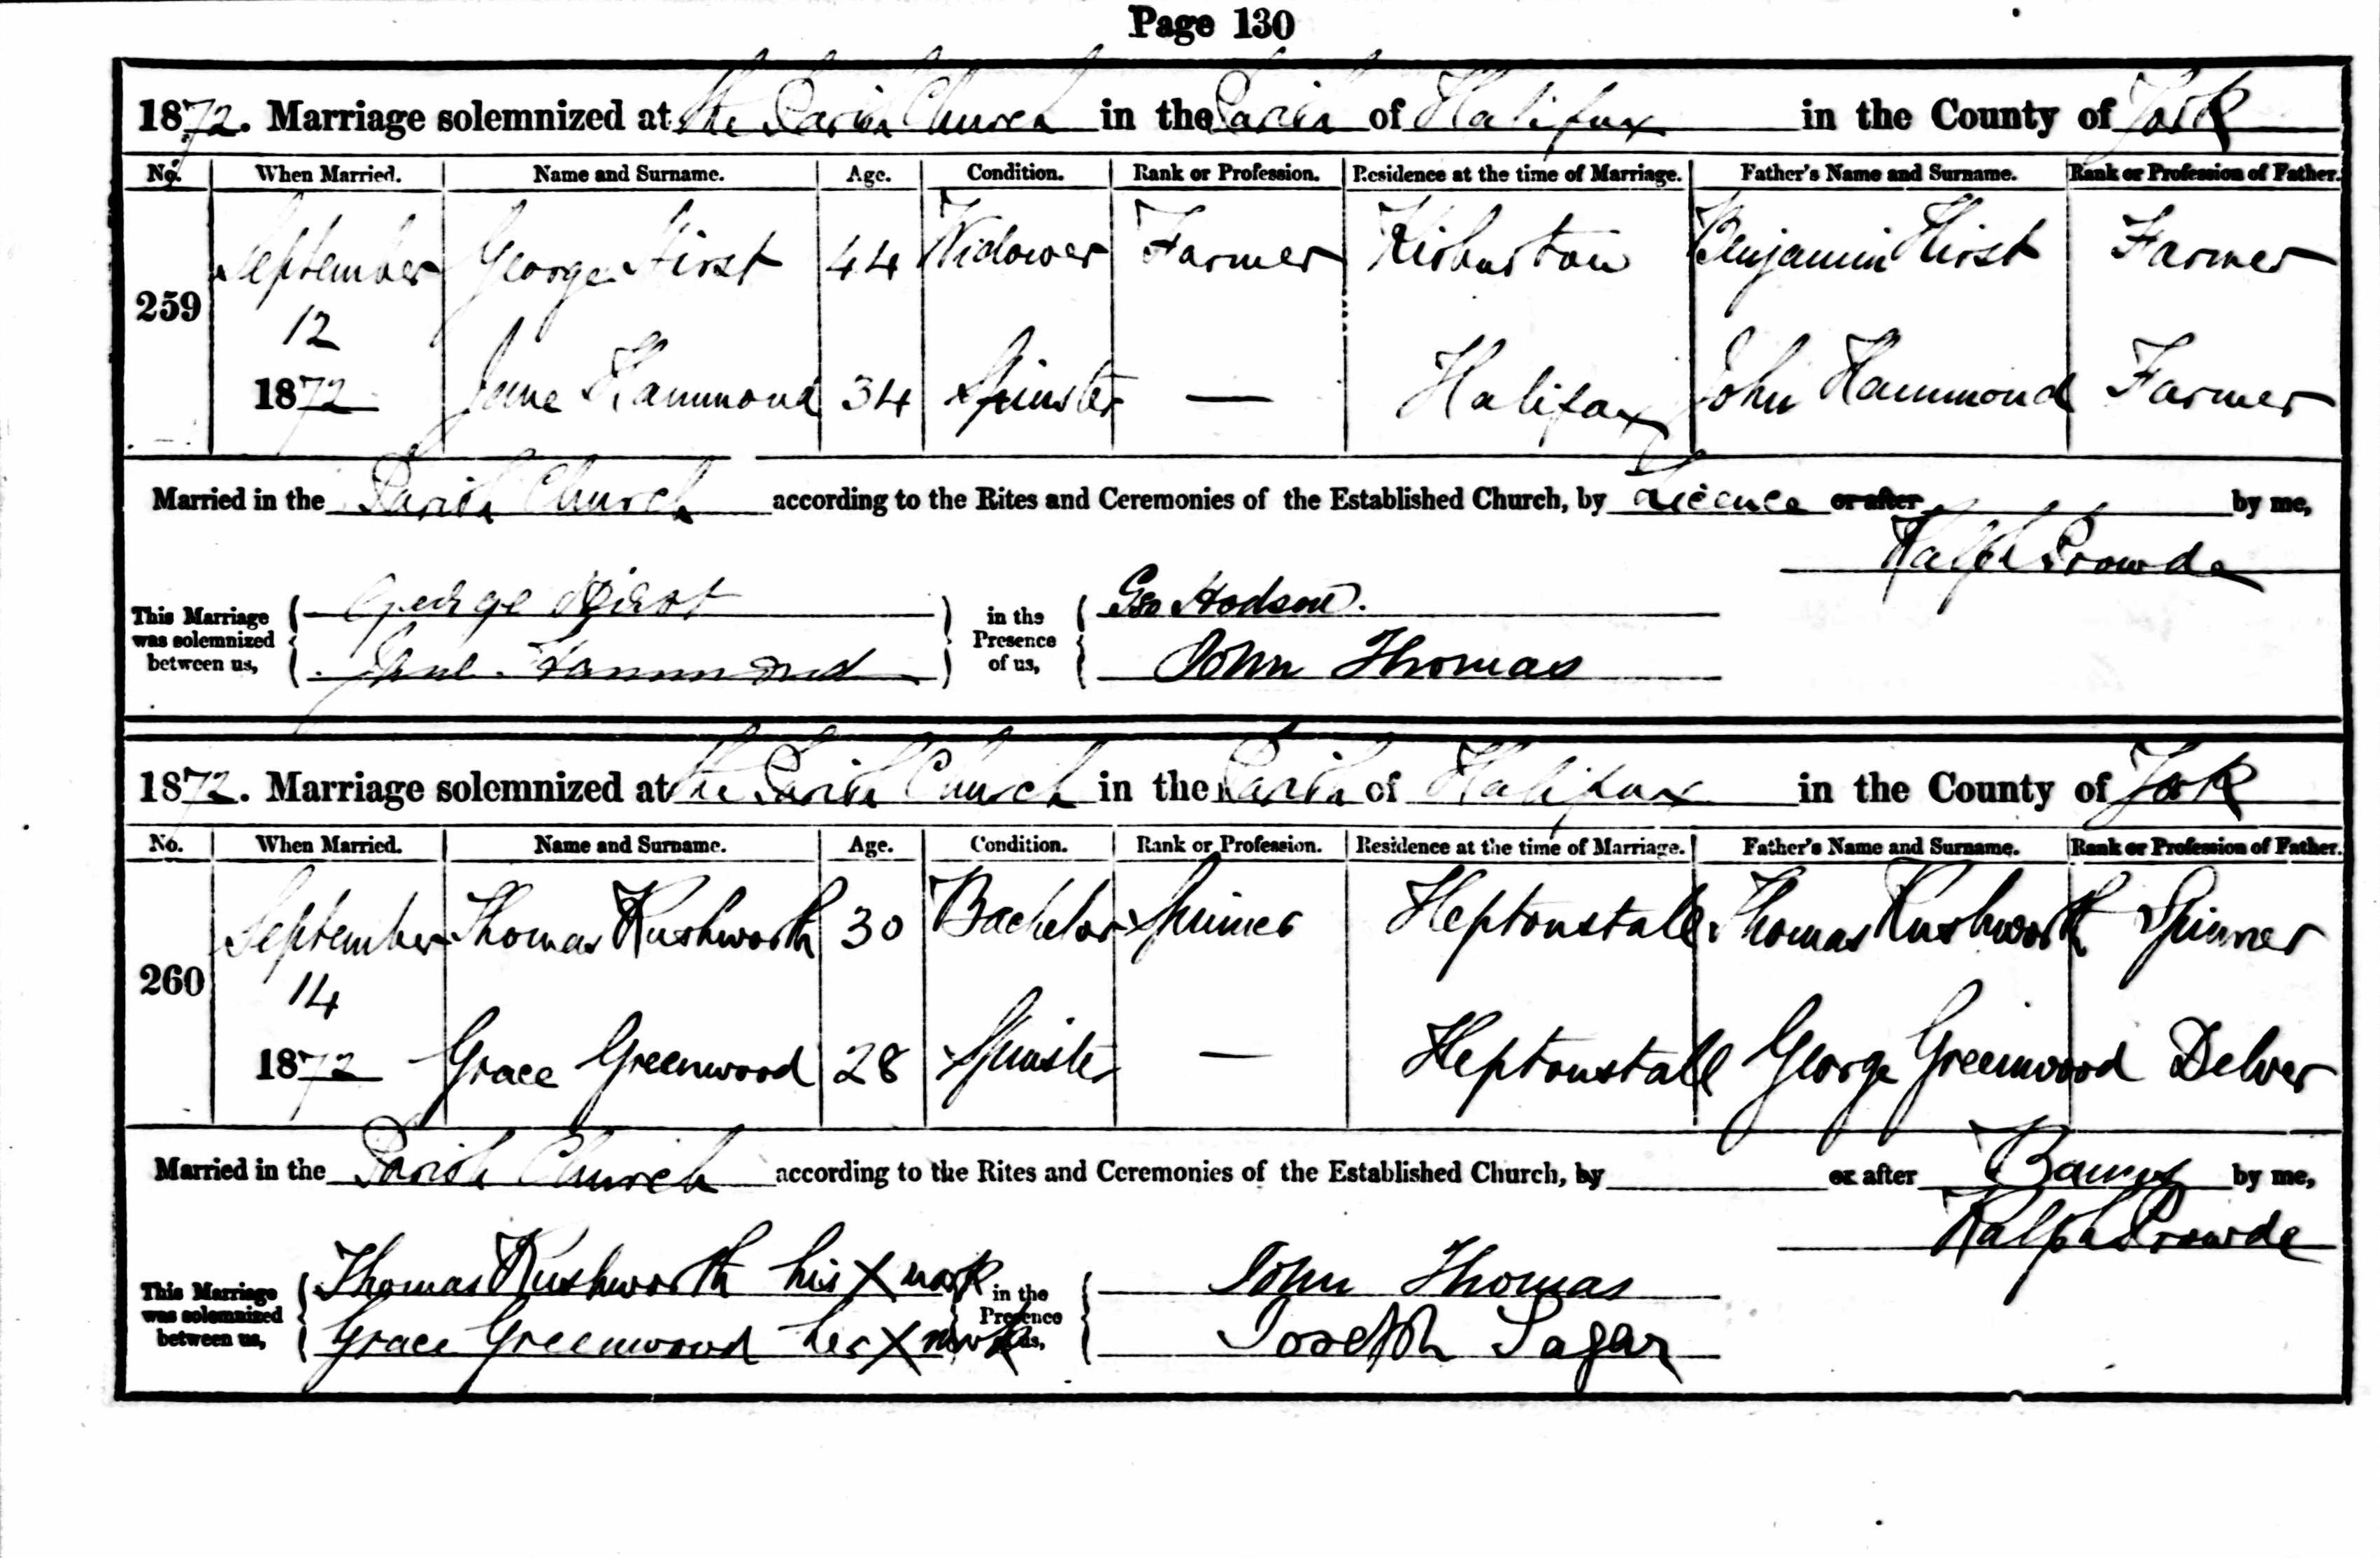 Page 130
1872. Marriage solemnized at the Parish Church in the Parish of Halifax in the County of York
No. When Married. Name and Surname. Age. Condition. Rank or Profession. Residence at the time of Marriage. Father's Name and Surname. Rank or Profession of Father.
September George Hirst 44 Widower Farmer Kirkburton Benjamin Hirst Farmer
259
12
1872 Jane Hammond 34 Spinster — Halifax John Hammond Farmer
Married in the Parish Church according to the Rites and Ceremonies of the Established Church, by Licence or after by me,
Ralph Prowde
This Marriage was solemnized between us, George Hirst in the Presence of us, Geo Hodson.
Jane Hammond John Thomas
1872. Marriage solemnized at the Parish Church in the Parish of Halifax in the County of York
No. When Married. Name and Surname. Age. Condition. Rank or Profession. Residence at the time of Marriage. Father's Name and Surname. Rank or Profession of Father.
September Thomas Rushworth 30 Bachelor Spinner Heptonstall Thomas Rushworth Spinner
260
14
1872 Grace Greenwood 28 Spinster — Heptonstall George Greenwood Delver
Married in the Parish Church according to the Rites and Ceremonies of the Established Church, by or after Banns by me,
Ralph Prowde
This Marriage was solemnized between us, Thomas Rushworth his X mark in the Presence of us, John Thomas
Grace Greenwood her X mark Joseph Sagar